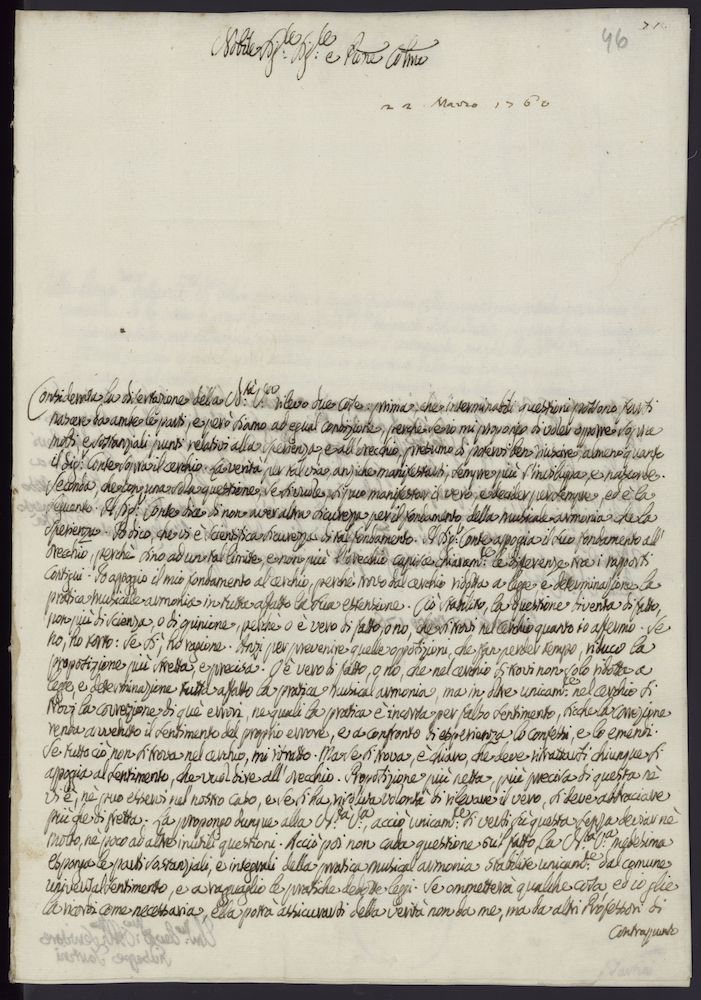 46
Nobile Sig:re Sig:re e Pãne Colmo
22 Marzo 1760
Considerata la disertazione della N:rà V:ra rilevo due cose: prima, che interminabili questioni possono farsi
nascere da ambe le parti, e però siamo ad egual condizione, perche se io mi propongo di voler opporre sopra
molti, e sostanziali punti relativi alla sperienza, e all'orecchio, presumo di potervi ben riuscire almeno quanto
il Sig: Conte sopra il cerchio. La verità per tal via anziche manifestarsi, sempre più s'inviluppa, e nasconde.
Seconda, che con una sola questione, se si vuole, si può manifestar il vero, e decider per sempre, ed è la
seguente. Il Sig: Conte sta di non aver altra sicurezza per il fondamento della musicale armonia che la
sperienza. Io dico, che vi è scientifica sicurezza di tal fondamento. Il Sig: Conte appoggia il suo fondamento all'
orecchio, perchè sino ad un tal limite, e non più l'orecchio capisce chiaram:te le differenze tra i rapporti
contigui. Io appoggio il mio fondamento al cerchio, perche trovo dal cerchio ridotta a legge, e determinazione la
pratica musicale armonia in tutta affatto la sua estensione. Ciò stabilito, la questione diventa di fatto,
non più di scienza, o di opinione, perche o è vero di fatto, o nò, che si trovi nel cerchio quanto io affermo. Se
nò, hò torto: se sì, hò ragione. Anzi per prevenire quelle opposizioni, che fan perder tempo, riduco la
proposizione più stretta, e precisa. O è vero di fatto, o nò, che nel cerchio si trovi non solo ridotta a
legge, e determinazione tutta affatto la pratica musical armonia, ma in oltre unicam:te nel cerchio si
trovi la correzione di què errori, ne quali la pratica è incorsa per falso sentimento, sicche la correzione
renda avvertito il sentimento del proprio errore, e a confronto di esperienza lo confessi, e lo emendi.
Se tutto ciò non si trova nel cerchio, mi ritratto. Ma se si trova, è chiaro, che deve ritrattarsi chiunque si
appoggia al sentimento, che vuol dire all'orecchio. Proposizione più netta, più precisa di questa nè
vi è, nè può esservi nel nostro caso, e se si ha risoluta volontà di rilevare il vero, si deve abbracciare
più che di fretta. La propongo dunque alla N:ra V:ra, acciò unicam:te si versi sù questa senza deviar nè
molto, ne poco ad altre inutili questioni. Acciò poi non cada questione sul fatto, la N:ra V:ra medesima
esponga le parti sostanziali, e integrali della pratica musical armonia stabilite unicam:te dal comune
universal sentimento, e a ragguaglio le pratiche dedotte leggi. Se ommetterà qualche cosa, ed io glie
la ricordi come necessaria, ella potrà assicurarsi della verità non da me, ma da altri Professori di
Contrapunto